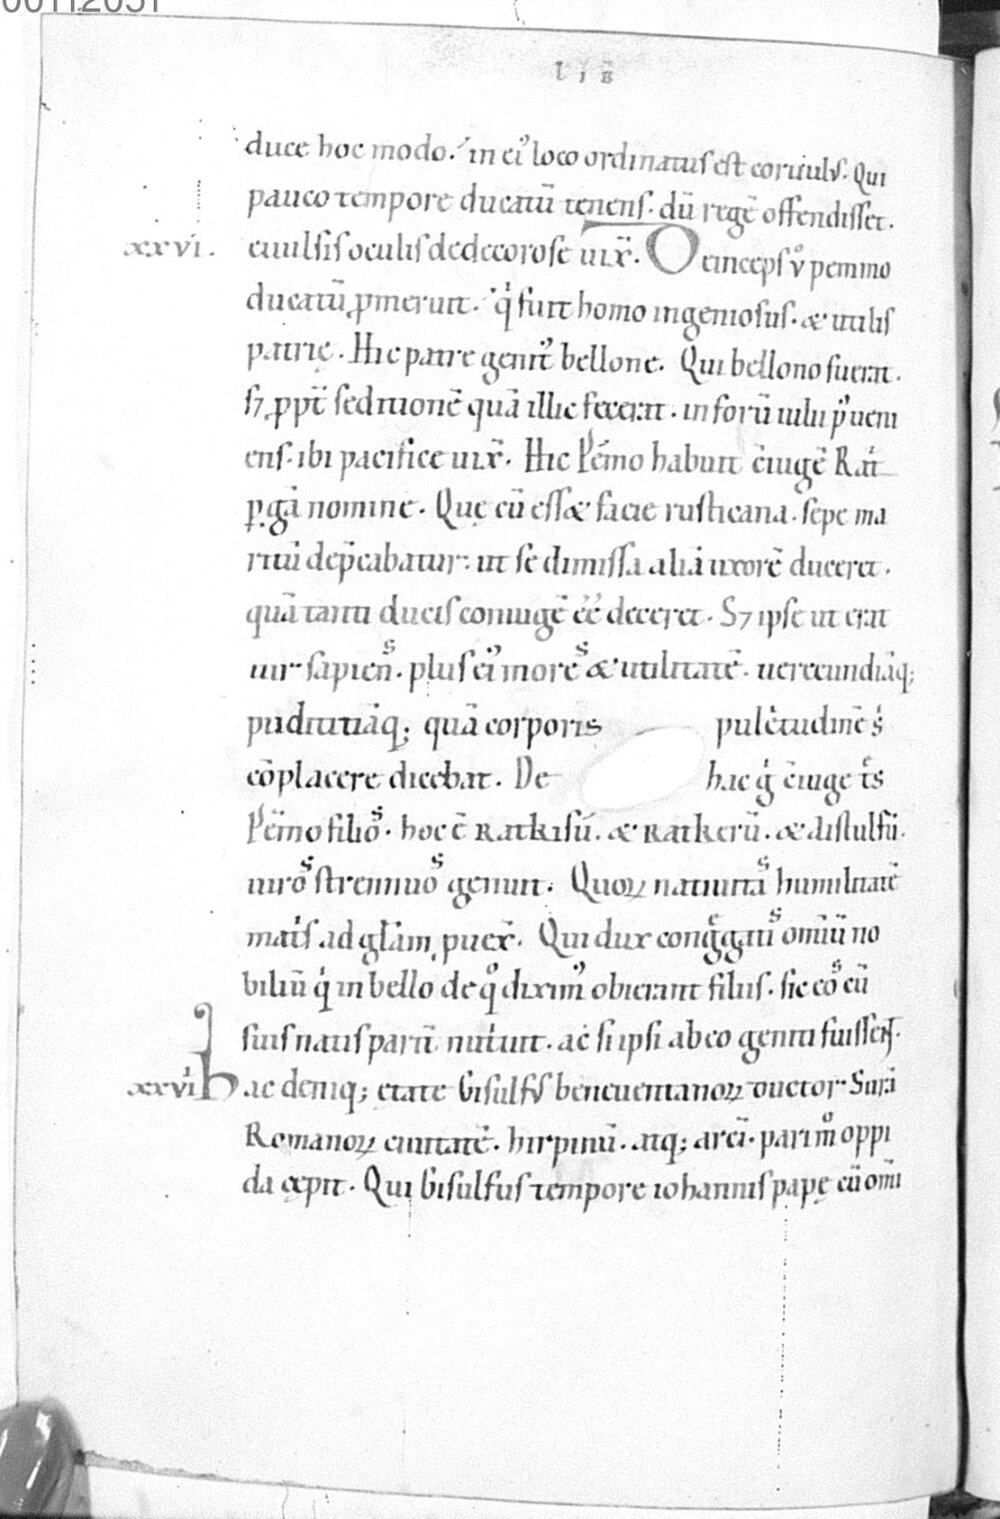 LIB̄
duce hoc modo. in ei᾽ loco ordinatus est coruulus. Qui
pauco tempore ducatū tenens. dū regē offendisset.
xxvi. euulsis oculis dedecorose uix̄. Deinceps v̊ pemmo
ducatū ꝓmeruit. q̍ fuit homo ingeniosus. & utilis
patrię. Hic patre genit᾽ bellone. Qui bellono fuerat.
s; ꝓpt̄ seditionē quā illic fecerat. in forū iulii ꝑueni
ens. ibi pacifice uix̄. Hic Pēmo habuit c̄iugē Rat
ꝑgā nomine. Quę cū ess& facie rusticana. sepe ma
ritū dep̄cabatur. ut se dimissa aliā uxorē duceret.
quā tanti ducis coniugē ēē deceret. S; ipse ut erat
uir sapiens. plus ei᾽ mores & utilitatē. uerecundiāq;
pudicitiāq; quā corporis pulc̍tudinē s̍
cōplacere dicebat. De hac g̍ c̄iuge t̄s
Pēmo filios. hoc ē Ratkisū. & Ratkerū. & distulfū.
uiros strennuos genuit. Quoꝝ natiuitas humilitatē
mat̍s ad gl̄am puex̄. Qui dux cong̍gatis omiū no
biliū q̍ in bello de q̊ dixim᾽ obierant filiis. sic eos cū
suis natis parit̄ nut̍iuit. ac̍ si ipsi ab eo geniti fuissent.
xxvi Hac deniq; etate Gisulfus beneuentanoꝝ ductor Surā
Romanoꝝ ciuitatē. hirpinū. atq; arcī. parim̊ oppi
da cępit. Qui Gisulfus tempore iohannis papę cū omī